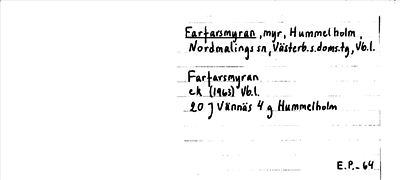 Farfarsmyran, myr, Hummelholm,
Nordmalings sn, Västerb.s.doms.tg, Vb.l.
Farfarsmyran
ek (1963) Vb.l.
20 J Vännäs 4 g Hummelholm
E.P.-64